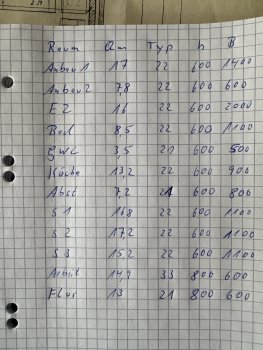 Raum Qm Typ h B
Anbau 1 17 22 600 1400
Anbau 2 7,8 22 600 600
EZ 16 22 600 2000
Bad 8,5 22 600 1100
GWC 3,5 21 600 500
Küche 13,2 22 600 900
Abst 7,2 21 600 800
S 1 16,8 22 600 1100
S 2 17,2 22 600 1100
S 3 15,2 22 600 1100
Arbeit 14,4 33 800 600
Flur 13 21 800 600